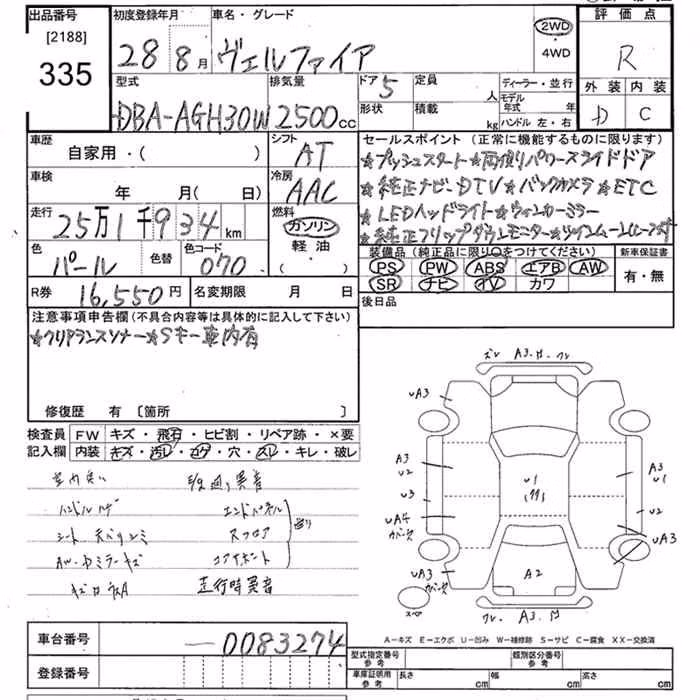 出品番号
[2188]
335
初度登録年月
28 8 月
車名・グレード
ヴェルファイア
2WD
・
4WD
評価点
R
外装 内装
D C
型式
DBA-AGH30W
排気量
2500 cc
ドア 5
定員
人
形状
積載
kg
ディーラー・並行
モデル年式 年
ハンドル 左・右
車歴
自家用・( )
シフト
AT
車検
年 月( 日)
冷房
AAC
走行
25万1千934 km
燃料
ガソリン
軽油
・( )
色
パール
色替
色コード
070
R券 16,550円
名変期限 月 日
セールスポイント(正常に機能するものに限ります)
★プッシュスタート★両側パワースライドドア
★純正ナビ・DTV★バックカメラ★ETC
★LEDヘッドライト★ウィンカーミラー
★純正フリップダウンモニター★ツインムーンルーフ付
装備品(純正品に限り○をつけてください)
PS PW ABS エアB AW
SR ナビ TV カワ
新車保証書
有・無
後日品
注意事項申告欄(不具合内容等は具体的に記入して下さい)
★クリアランスソナー★Sキー車内有
修復歴 有 [箇所 ]
検査員 FW キズ・飛石・ヒビ割・リペア跡・×要
記入欄 内装 キズ・汚レ・コゲ・穴・スレ・キレ・破レ
ハンドルハゲ エンドパネル
シート
AW・ドミラーキズ コアサポート
走行時異音
ズレ A3
UA3
A3
U2
U3
UA4
カバーズ
UA3
カバーズ
U1
A2
A3
U1
U2
UA3
スペア
A3
A－キズ E－エクボ U－凹み W－補修跡 S－サビ C－腐食 XX－交換済
車台番号 －0083274
登録番号
型式指定番号
参考
類別区分番号
参考
車庫証明用
参考
長さ cm
幅 cm
高さ cm